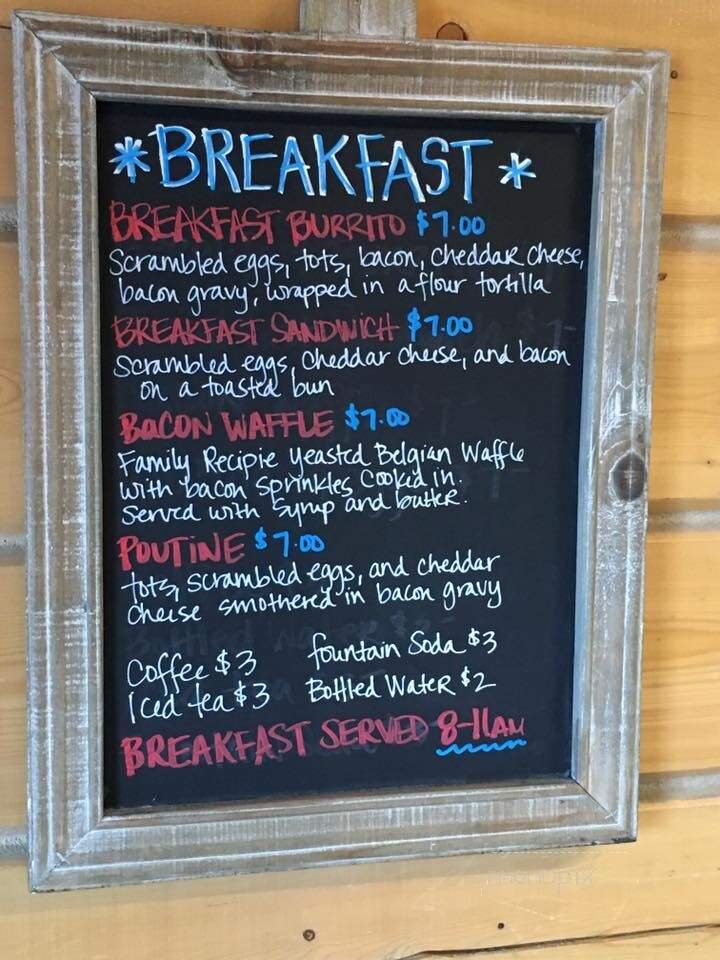 *BREAKFAST*
BREAKFAST BURRITO $7.00
Scrambled eggs, tots, bacon, cheddar cheese,
bacon gravy, wrapped in a flour tortilla
BREAKFAST SANDWICH $7.00
Scrambled eggs, cheddar cheese, and bacon
on a toasted bun
BACON WAFFLE $7.00
Family Recipie yeasted Belgian Waffle
with bacon sprinkles cookid in.
Served with syrup and butter.
POUTINE $7.00
tots, scrambled eggs, and cheddar
cheise smothered in bacon gravy
Coffee $3 fountain Soda $3
Iced tea $3 Bottled Water $2
BREAKFAST SERVED 8-11AM